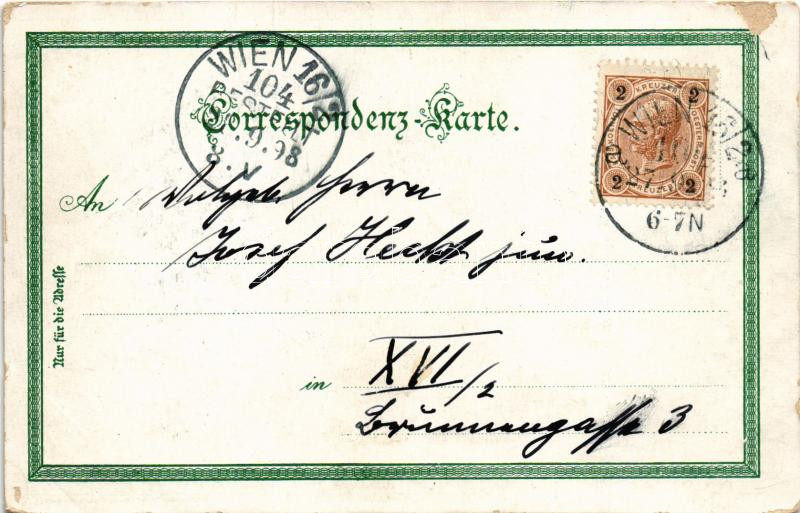 WIEN 16/2
104
BESTELLT
.9.98
8.V
Correspondenz-Karte.
2 KREUZER 2
2 KREUZER 2
WIEN 16/2
6-7N
An
Herrn
Josef Hecht jun.
Nur für die Adresse
in XVI/2
Brunnengasse 3